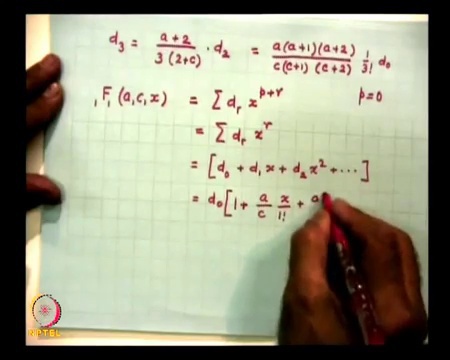 d₃ = a+2 / 3(2+c) · d₂ = a(a+1)(a+2) / c(c+1)(c+2) 1/3! d₀
₁F₁(a,c,x) = ∑ dᵣ x^(p+r) p=0
= ∑ dᵣ x^r
= [d₀ + d₁x + d₂x² + ⋯]
= d₀[1 + a/c x/1! + a
NPTEL